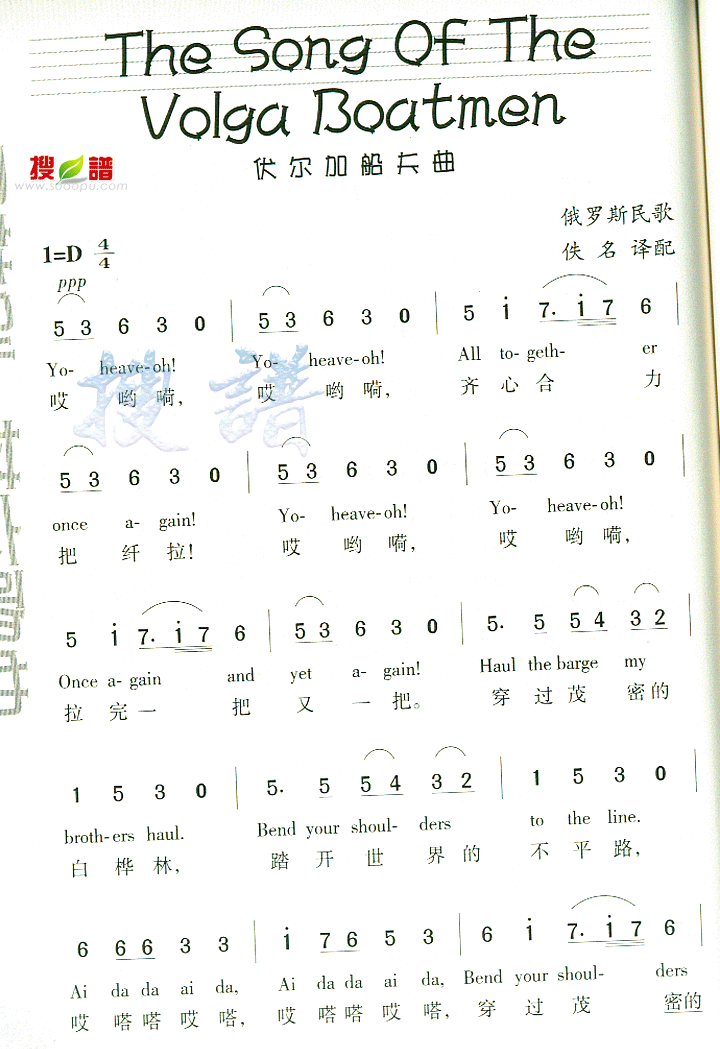 The Song Of The
Volga Boatmen
伏尔加船夫曲
搜 譜
www.sooopu.com
俄罗斯民歌
1=D 4/4
佚 名 译配
ppp
5 3 6 3 0 | 5 3 6 3 0 | 5 i 7. i 7 6 |
Yo- heave-oh! Yo- heave-oh! All to-geth- er
哎 哟 嗬, 哎 哟 嗬, 齐 心 合 力
搜 譜
5 3 6 3 0 | 5 3 6 3 0 | 5 3 6 3 0 |
once a- gain! Yo- heave-oh! Yo- heave-oh!
把 纤 拉! 哎 哟 嗬, 哎 哟 嗬,
5 i 7. i 7 6 | 5 3 6 3 0 | 5. 5 5 4 3 2 |
Once a- gain and yet a- gain! Haul the barge my
拉 完 一 把 又 一 把。 穿 过 茂 密 的
1 5 3 0 | 5. 5 5 4 3 2 | 1 5 3 0 |
broth-ers haul. Bend your shoul- ders to the line.
白 桦 林, 踏 开 世 界 的 不 平 路,
6 6 6 3 3 | i 7 6 5 3 | 6 i 7. i 7 6 |
Ai da da ai da, Ai da da ai da, Bend your shoul- ders
哎 嗒 嗒 哎 嗒, 哎 嗒 嗒 哎 嗒, 穿 过 茂 密的